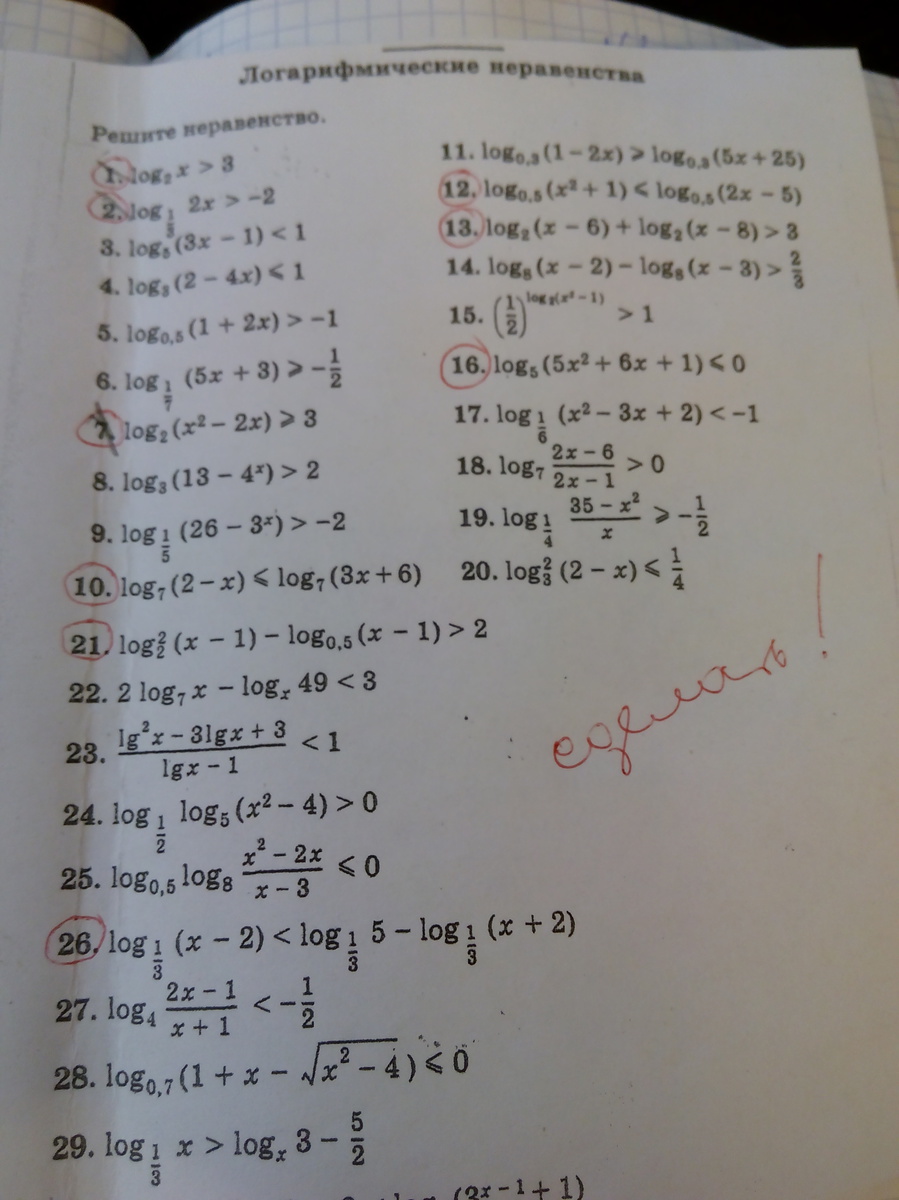 Логарифмические неравенства
Решите неравенство.
1. log₂ x > 3
2. log_{1/3} 2x > −2
3. log₅ (3x − 1) < 1
4. log₃ (2 − 4x) ⩽ 1
5. log₀,₅ (1 + 2x) > −1
6. log_{1/7} (5x + 3) ⩾ −1/2
7. log₂ (x² − 2x) ⩾ 3
8. log₃ (13 − 4ˣ) > 2
9. log_{1/5} (26 − 3ˣ) > −2
10. log₇ (2 − x) ⩽ log₇ (3x + 6)
11. log₀,₃ (1 − 2x) ⩾ log₀,₃ (5x + 25)
12. log₀,₅ (x² + 1) ⩽ log₀,₅ (2x − 5)
13. log₂ (x − 6) + log₂ (x − 8) > 3
14. log₈ (x − 2) − log₈ (x − 3) > 2/3
15. (1/2)^{log₂(x² − 1)} > 1
16. log₅ (5x² + 6x + 1) ⩽ 0
17. log_{1/6} (x² − 3x + 2) < −1
18. log₇ (2x − 6)/(2x − 1) > 0
19. log_{1/4} (35 − x²)/x ⩾ −1/2
20. log²₃ (2 − x) ⩽ 1/4
21. log²₂ (x − 1) − log₀,₅ (x − 1) > 2
22. 2 log₇ x − logₓ 49 < 3
23. (lg²x − 3lgx + 3)/(lgx − 1) < 1
24. log_{1/2} log₅ (x² − 4) > 0
25. log₀,₅ log₈ (x² − 2x)/(x − 3) ⩽ 0
26. log_{1/3} (x − 2) < log_{1/3} 5 − log_{1/3} (x + 2)
27. log₄ (2x − 1)/(x + 1) < −1/2
28. log₀,₇ (1 + x − √(x² − 4)) ⩽ 0
29. log_{1/3} x > logₓ 3 − 5/2
(3ˣ⁻¹ + 1)
сделать!